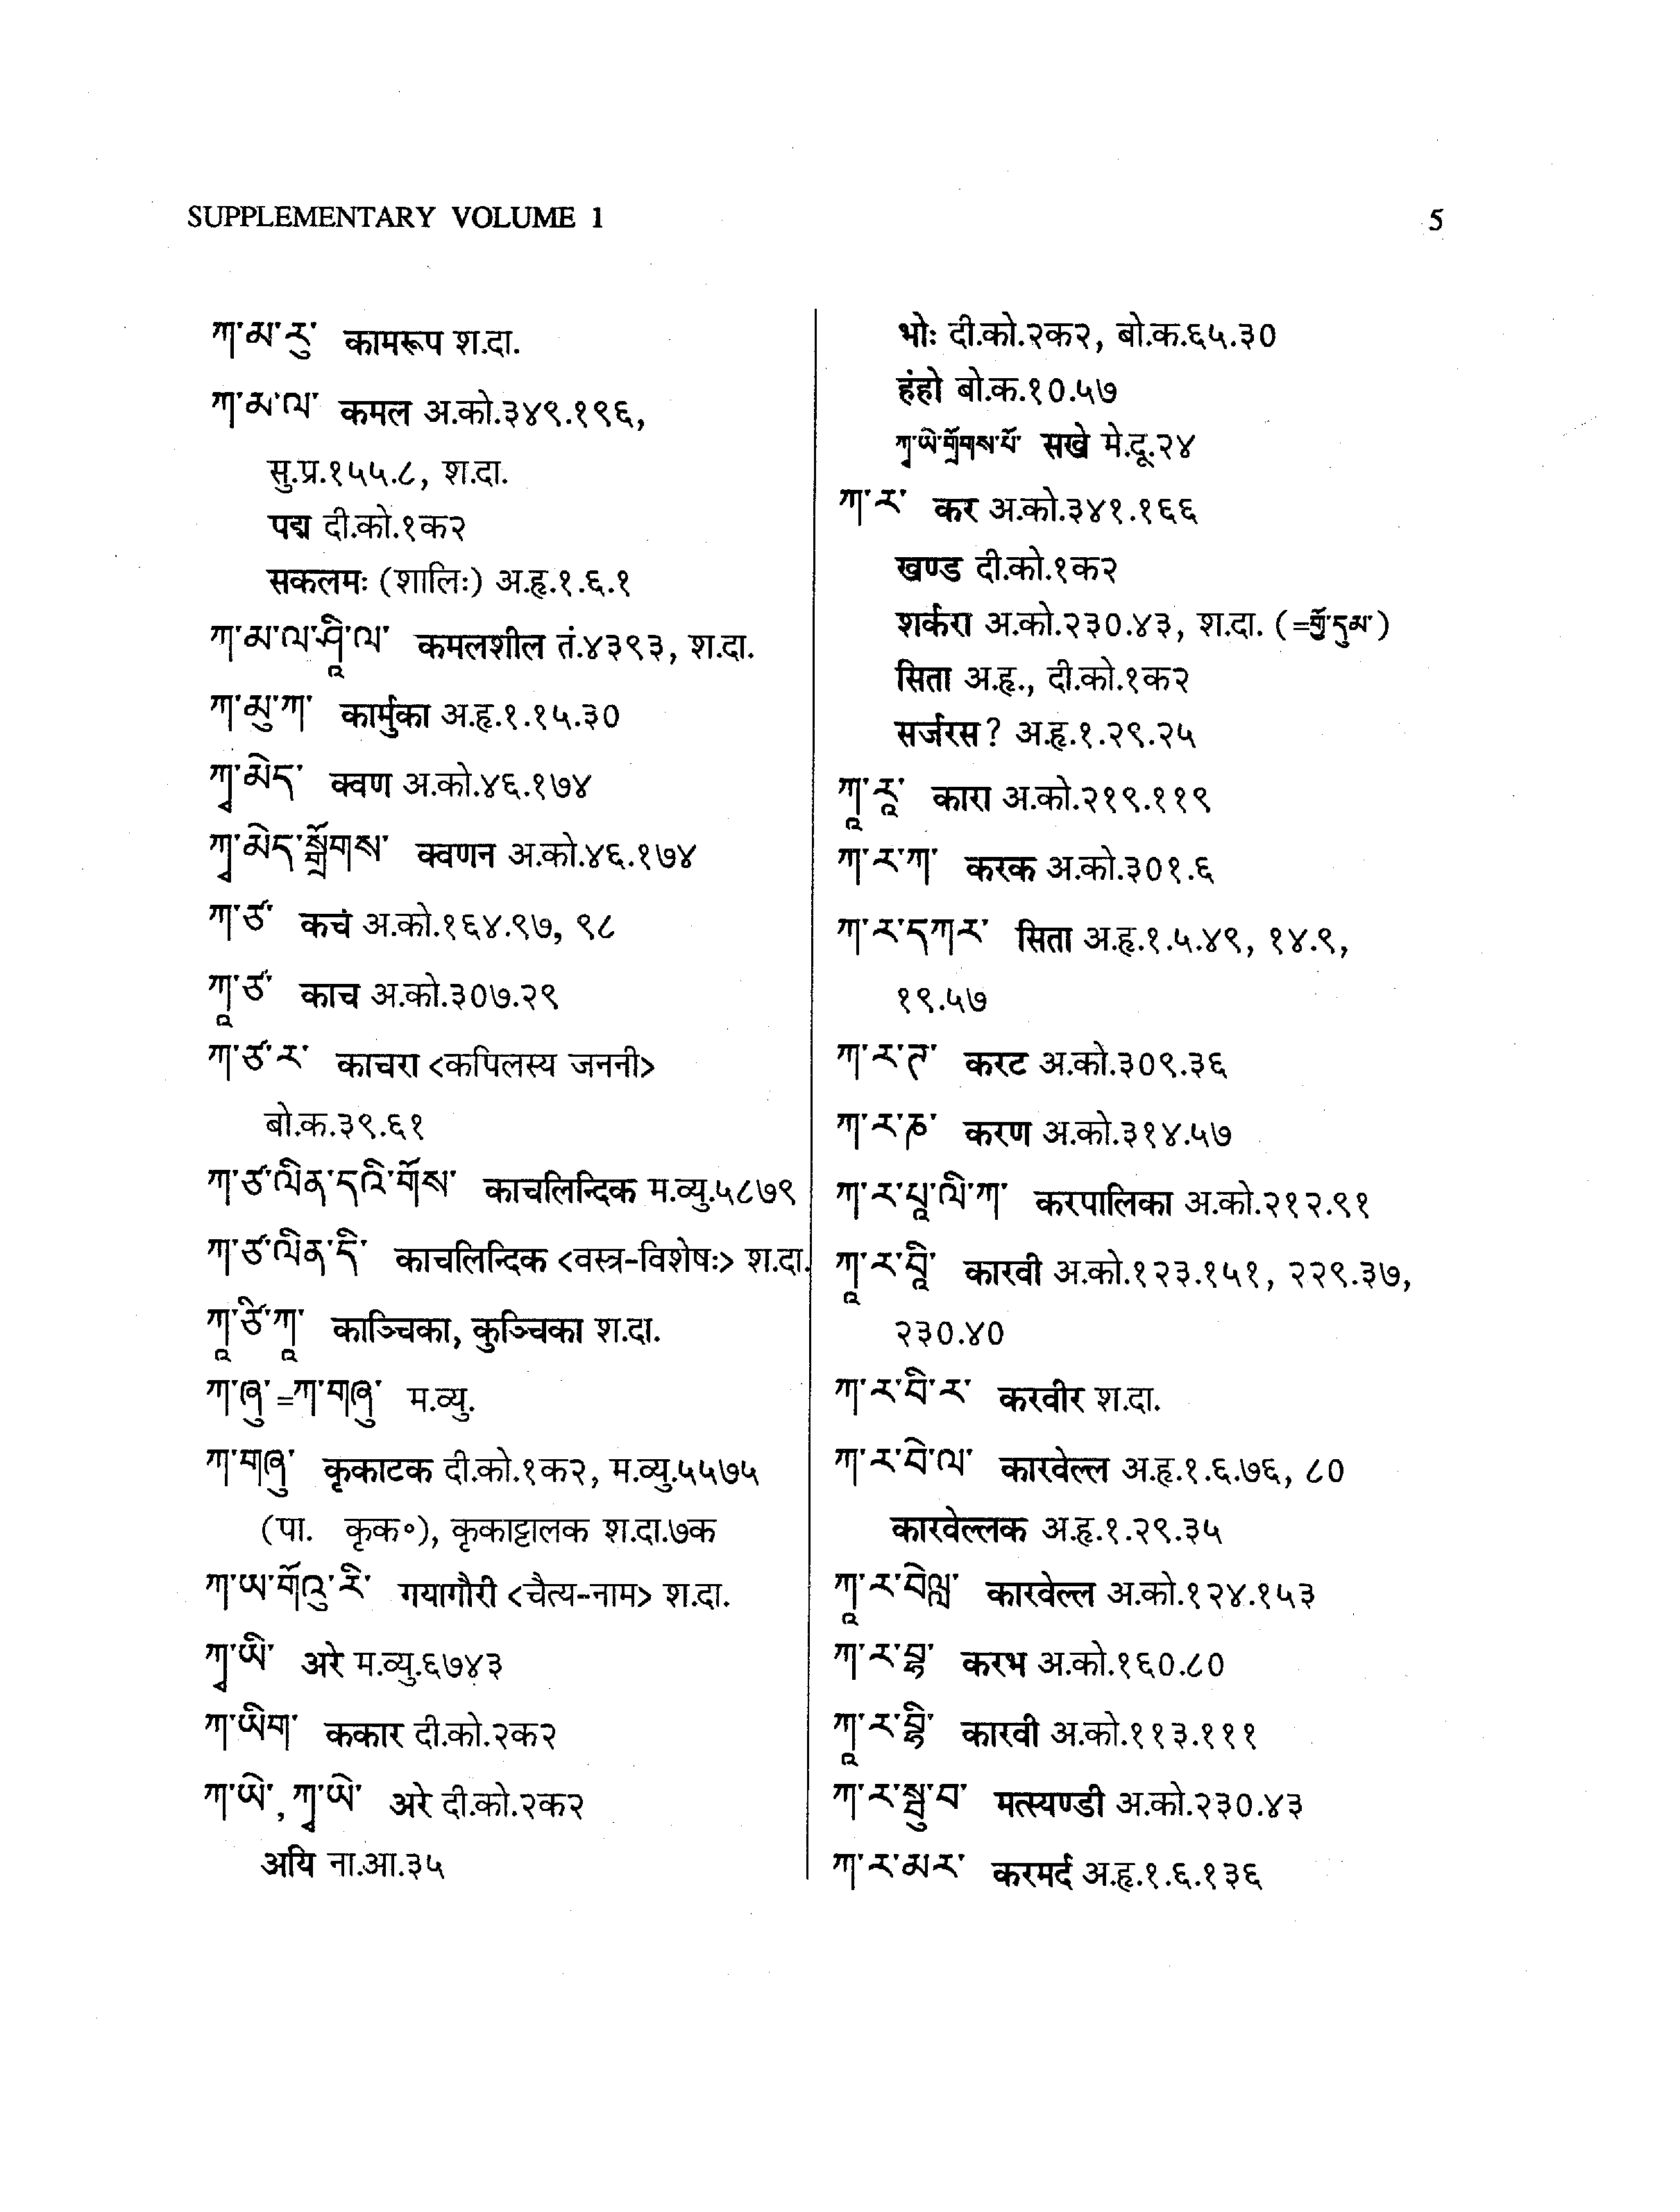 SUPPLEMENTARY VOLUME 1
5
ཀ་མ་རུ་ कामरूप श.दा.
ཀ་མ་ལ་ कमल अ.को.३४९.१९६,
सु.प्र.१५५.८, श.दा.
पद्म दी.को.१क२
सकलमः (शालिः) अ.हृ.१.६.१
ཀ་མ་ལ་ཤཱི་ལ་ कमलशील तं.४३९३, श.दा.
ཀ་མུ་ཀ་ कार्मुका अ.हृ.१.१५.३०
ཀྭ་མེད་ क्वण अ.को.४६.१७४
ཀྭ་མེད་སྒྲོགས་ क्वणन अ.को.४६.१७४
ཀ་ཙ་ कचं अ.को.१६४.९७, ९८
ཀཱ་ཙ་ काच अ.को.३०७.२९
ཀ་ཙ་ར་ काचरा <कपिलस्य जननी>
बो.क.३९.६१
ཀ་ཙ་ལིན་དའི་གོས་ काचलिन्दिक म.व्यु.५८७९
ཀ་ཙ་ལིན་དི་ काचलिन्दिक <वस्त्र-विशेषः> श.दा.
ཀཱ་ཙི་ཀཱ་ काञ्चिका, कुञ्चिका श.दा.
ཀ་ཞུ་=ཀ་གཞུ་ म.व्यु.
ཀ་གཞུ་ कृकाटक दी.को.१क२, म.व्यु.५५७५
(पा. कृक॰), कृकाट्टालक श.दा.७क
ཀ་ཡ་གོའུ་རི་ गयागौरी <चैत्य-नाम> श.दा.
ཀྭ་ཡི་ अरे म.व्यु.६७४३
ཀ་ཡིག་ ककार दी.को.२क२
ཀ་ཡེ་, ཀྭ་ཡེ་ अरे दी.को.२क२
अयि ना.आ.३५
भोः दी.को.२क२, बो.क.६५.३०
हंहो बो.क.१०.५७
ཀྭ་ཡེ་གྲོགས་པོ་ सखे मे.दू.२४
ཀ་ར་ कर अ.को.३४१.१६६
खण्ड दी.को.१क२
शर्करा अ.को.२३०.४३, श.दा. (=གྱོ་དུམ་)
सिता अ.हृ., दी.को.१क२
सर्जरस? अ.हृ.१.२९.२५
ཀཱ་རཱ་ कारा अ.को.२१९.११९
ཀ་ར་ཀ་ करक अ.को.३०१.६
ཀ་ར་དཀར་ सिता अ.हृ.१.५.४९, १४.९,
१९.५७
ཀ་ར་ཊ་ करट अ.को.३०९.३६
ཀ་ར་ཎ་ करण अ.को.३१४.५७
ཀ་ར་པཱ་ལི་ཀ་ करपालिका अ.को.२१२.९१
ཀཱ་ར་བཱི་ कारवी अ.को.१२३.१५१, २२९.३७,
२३०.४०
ཀ་ར་བི་ར་ करवीर श.दा.
ཀ་ར་བེ་ལ་ कारवेल्ल अ.हृ.१.६.७६, ८०
कारवेल्लक अ.हृ.१.२९.३५
ཀཱ་ར་བེལླ་ कारवेल्ल अ.को.१२४.१५३
ཀ་ར་བྷ་ करभ अ.को.१६०.८०
ཀཱ་ར་བྷི་ कारवी अ.को.११३.१११
ཀ་ར་སྦུ་བ་ मत्स्यण्डी अ.को.२३०.४३
ཀ་ར་མར་ करमर्द अ.हृ.१.६.१३६